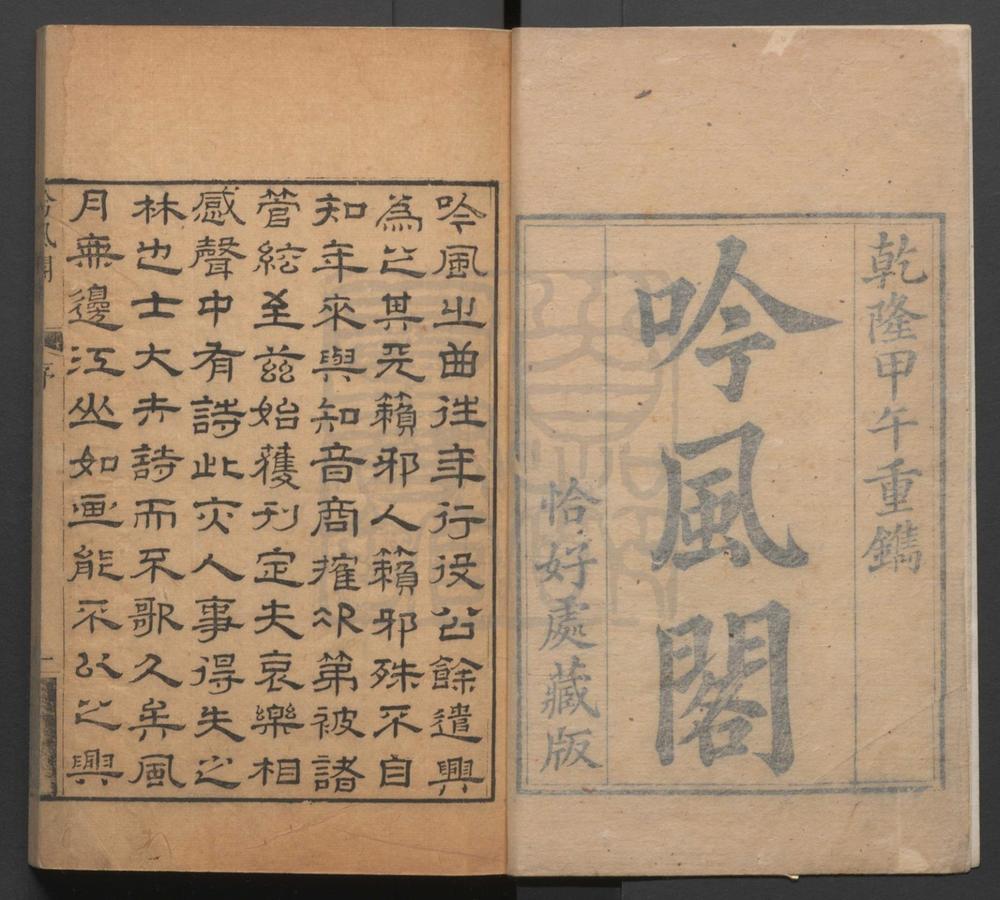 乾隆甲午重鐫
吟風閣
恰好處藏版
吟風之曲往年行役公餘遣興
為之其天籟邪人籟邪殊不自
知年來與知音商搉次第被諸
管絃至茲始獲刊定夫哀樂相
感聲中有詩此亦人事得失之
林也士大夫詩而不歌久矣風
月無邊江山如画能不以之興
吟風閣 序 一